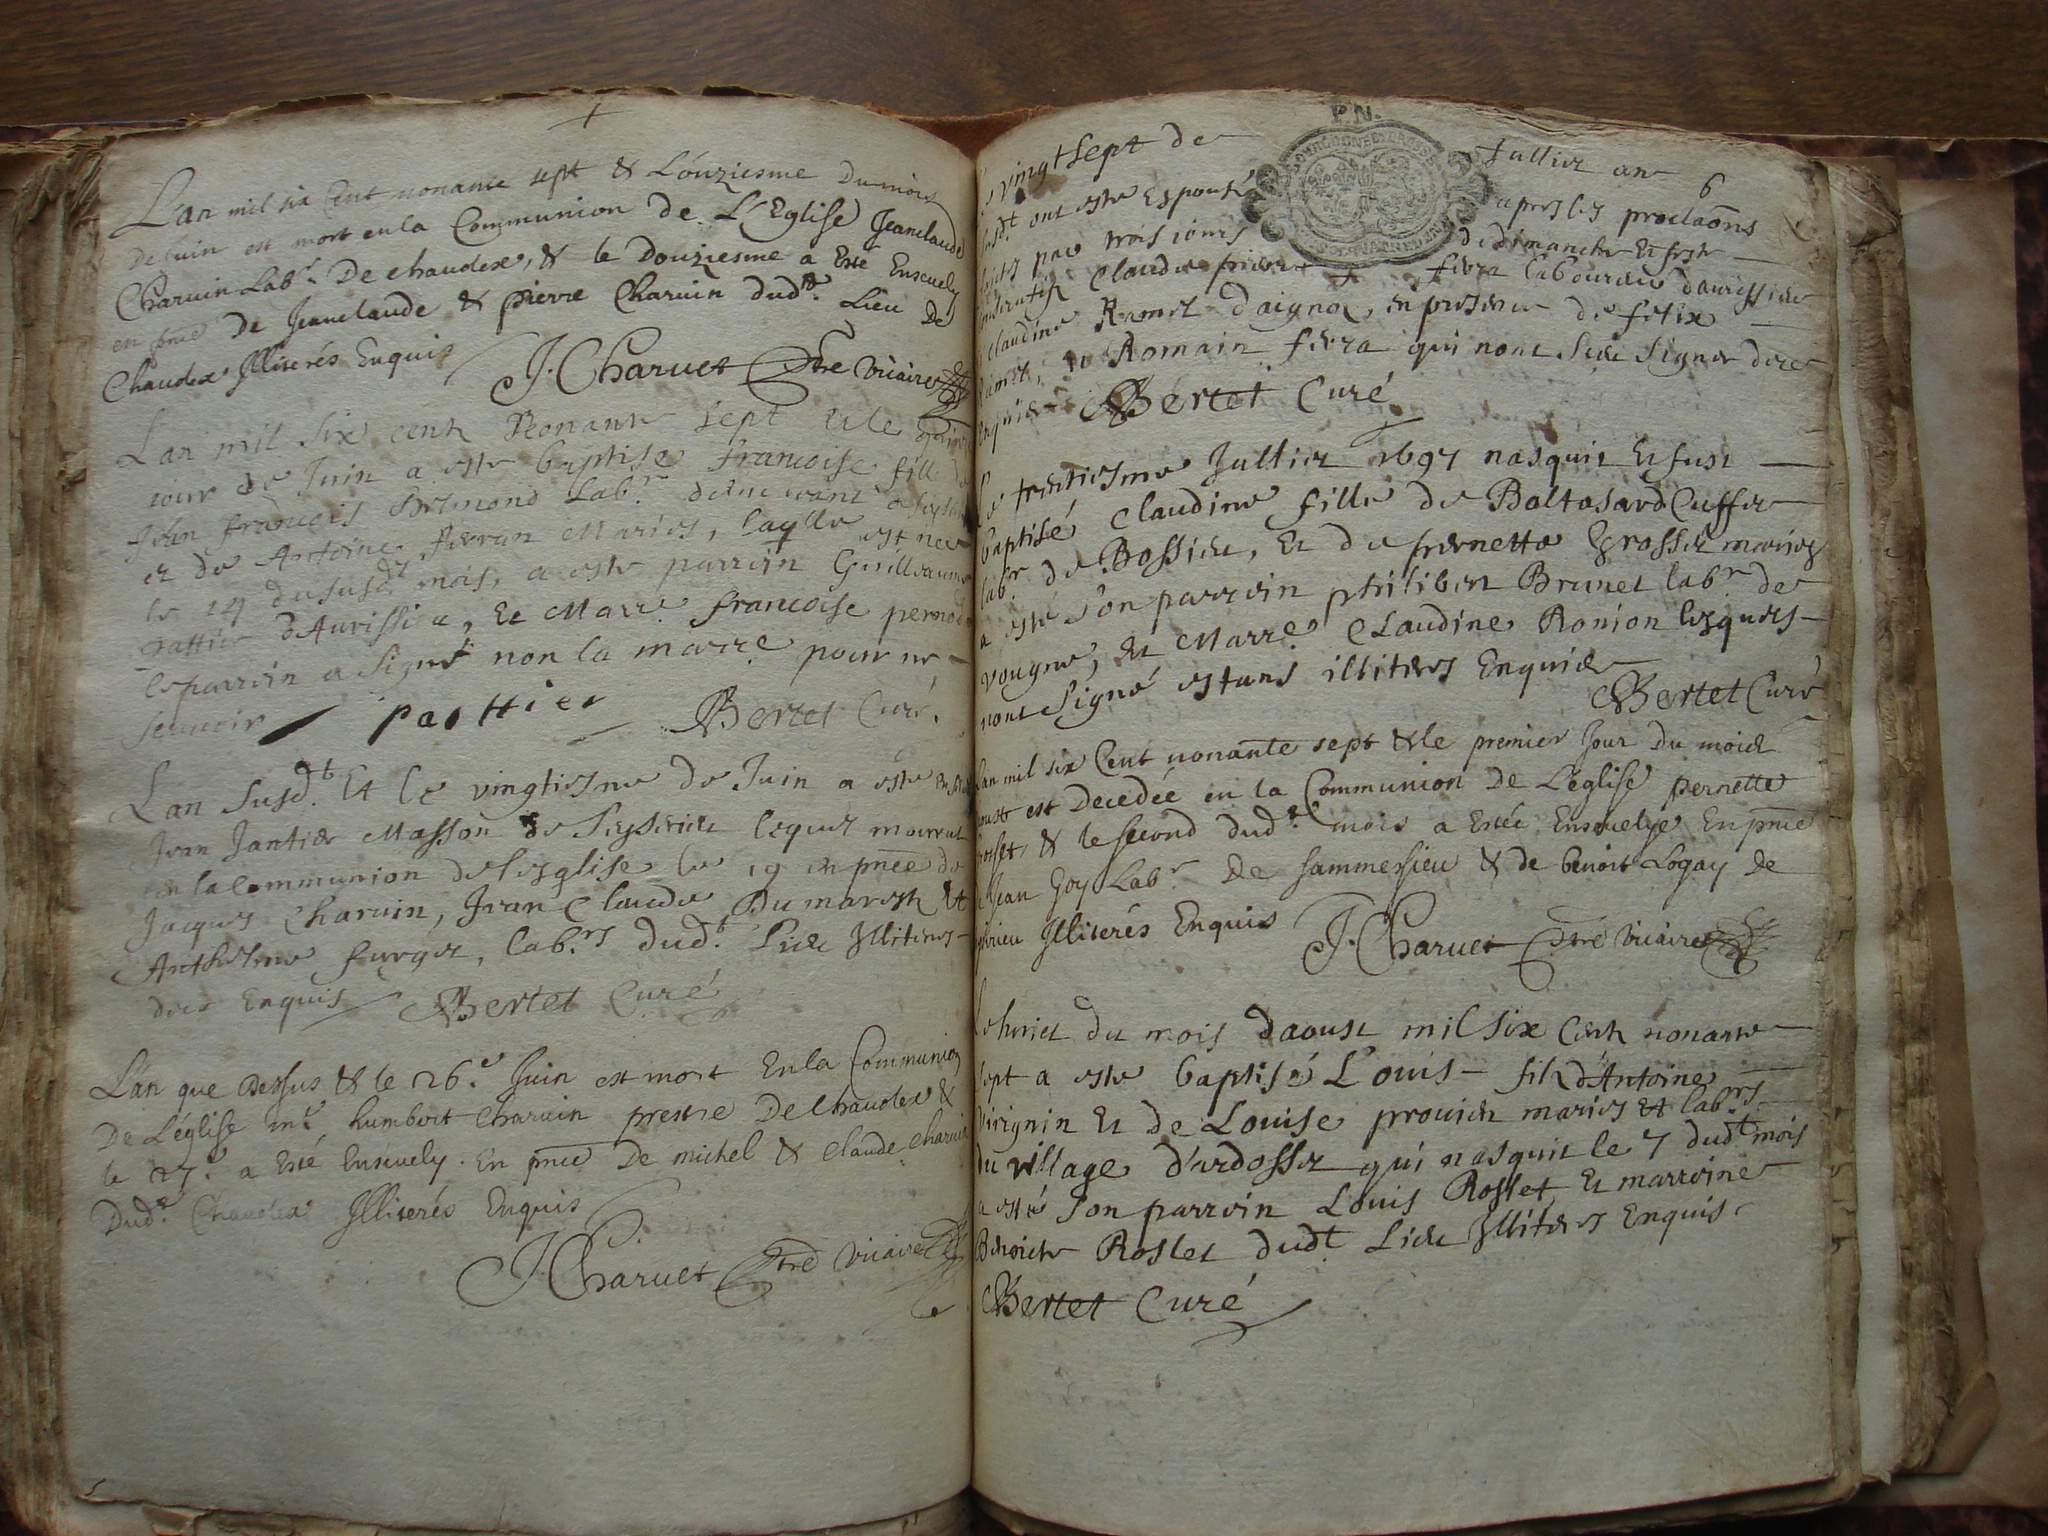 L'an mil six Cent nonante sept & L'ónziesme Du mois
De Juin est mort en la Communion De L'Eglise Jeanclaude
Charuin Lab.r De chaudex, & le Douziesme a Esté Enseuely
en pnce De Jeanclaude & pierre Charuin dud.t Lieu De
Chaudex Illiterés Enquis
J. Charuet ptre vicaire
Lan mil Six cent Nonante Sept et le
iour de Juin a este baptisé francoise fille de
Jean francois Bremond Lab.r
et de Antoine ferran Mariés, laqlle est nee
le 14 du susd.t mois, a este parrin Guilleaume
pattier d'Aurissieu, et Marre francoise
le parrin a Signé non la marre pour ne
scauoir
pasttier
Bertet Curé.
Lan Susd.t et le vingtiesme de Juin a este
Jean Jantier Masson de lequel mourut
en la communion de lesglise le 19 en pnce de
Jacques Charuin, Jean Claude Dumarest et
Anthelme furger, lab.rs dud.t Lieu Illiteres
dece Enquis
Bertet Curé
L'an que Dessus & le 26.e Juin est mort En la Communion
De L'église m.e humbert Charuin prestre De chaudex &
le 27.e a Esté Enseuely. En pnce De michel & claude charuin
Dud.t Chaudex Illiterés Enquis
J. Charuet ptre vicaire
Le
P.N.
vingt Sept de Jullier an
6
susd.t ont este Espousé apres les proclaons
faites par trois iours de dimanche et feste
Claude fierra laboureur daurissieu
claudine Ramet daignoz, en presence de felix
Ramet, et Romain fierra qui nont Sceu Signer dece
enquis
Bertet Curé
Le trentiesme Jullier 1697 nasquit Et fust
baptisé Claudine fille de Baltasard Cuffet
lab.r de Bossieu, et de pernette Grosset mariez
a esté Son parrein philibert Brunet lab.r de
vougne, et Marre Claudine Ronjon lesquels
nont Signé estans illiteres Enquis
Bertet Curé
Lan mil six Cent nonante sept & le premier Jour Du mois
aoust est Decedée en la Communion De L'église pernette
Grosset, & le second dud.t mois a Esté Enseuelye En pnce
de Jean Goy Lab.r de Sammersieu & de benoit Logay de
Illiterés Enquis
J. Charuet ptre vicaire
Le huict du mois daoust mil Six Cent nonante
sept a este baptisé Louis filz d'Antoine
Virignin Et de Louise prouien mariés et lab.rs
du village d'ardosset qui nasquit le 7 dud.t mois
a esté Son parrein Louis Rosset et marreine
Benoite Rosset dud.t Lieu Illiteres Enquis
Bertet Curé